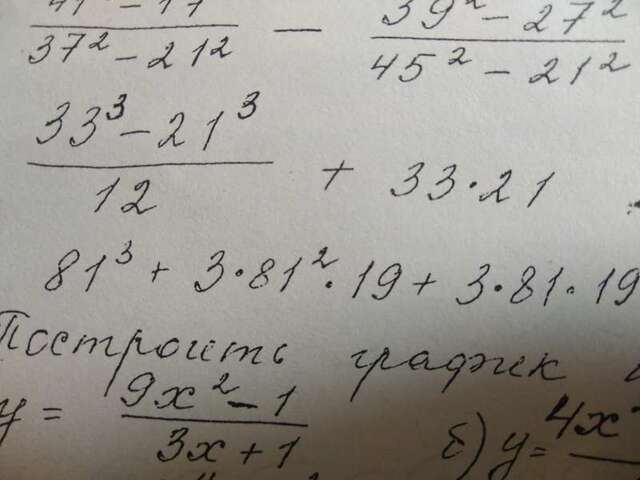 37² - 21² — 39² - 27² / 45² - 21²
(33³ - 21³) / 12 + 33·21
81³ + 3·81²·19 + 3·81·19
Построить график
y = (9x² - 1) / (3x + 1) б) y = 4x